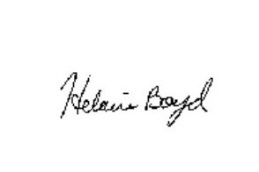 Helaine Boyd